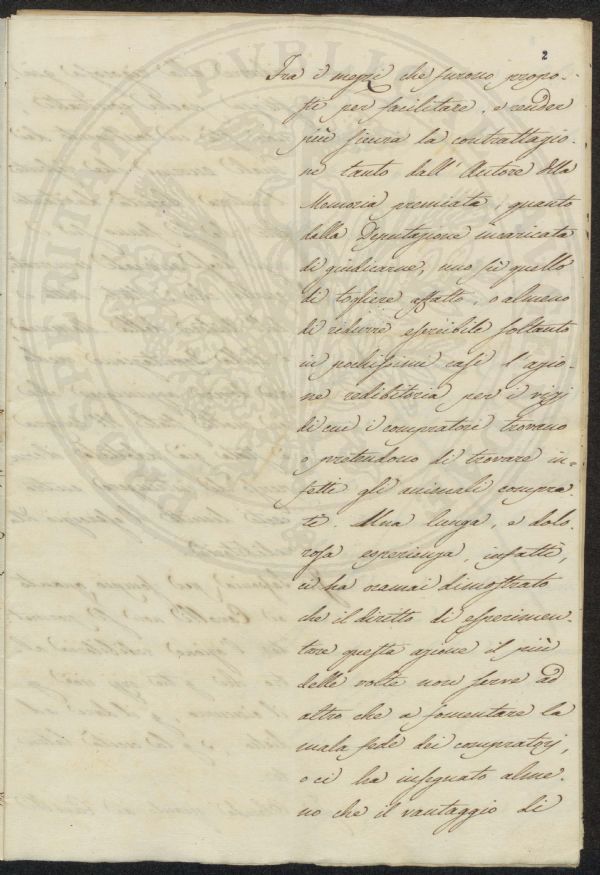 2
Tra i mezzi che furono propo-
sti per facilitare, e render
più sicura la contrattazio-
ne tanto dall'Autore della
Memoria premiata, quanto
dalla Deputazione incaricata
di giudicarne, uno si è quello
di togliere affatto, o almeno
di ridurre esperibile soltanto
in pochissimi casi l'azio-
ne redibitoria per i vizj
di cui i compratori trovano
o pretendono di trovare in-
fetti gli animali compra-
ti. Una lunga, e dolo-
rosa esperienza, infatti,
ci ha oramai dimostrato
che il diritto di esperimen-
tare questa azione il più
delle volte non serve ad
altro che a fomentare la
mala fede dei compratori,
o ci ha insegnato alme-
no che il vantaggio di